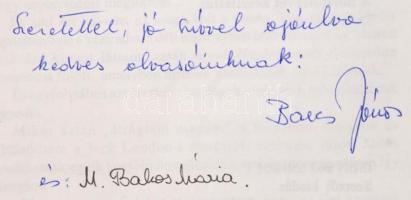 Szeretettel, jó szívvel ajánlva
kedves olvasóinknak:
Barcs János
és: M. Bakos Mária.